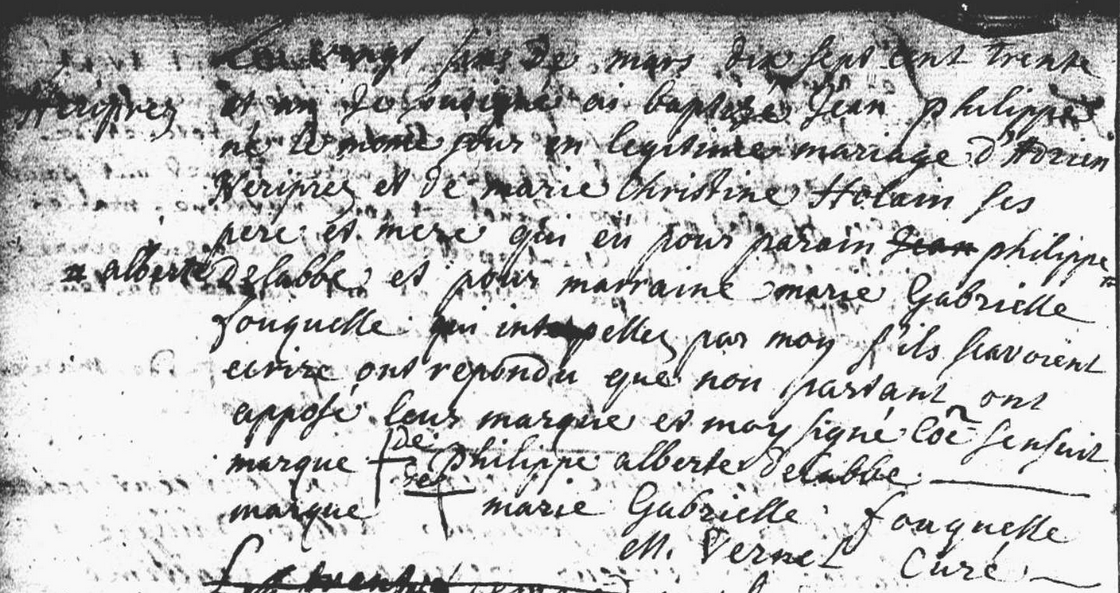 Le vingt six de mars dix sept cent trente
Heriprez
et un Je sousigné ai baptizé Jean philippe
né le meme jour en legitime mariage d'Adrien
Heriprez et de marie Christine Holain ses
pere et mere qui eu pour parain Jean philippe #
# alberte
Delabbe et pour marraine marie Gabrielle
fouquelle qui interpellez par moy s'ils scavoient
ecrire ont repondu que non partant ont
apposé leur marque et moy signé coe s'ensuit
marque de philippe alberte delabbe
marque de marie Gabrielle fouquelle
M. Vernel Curé